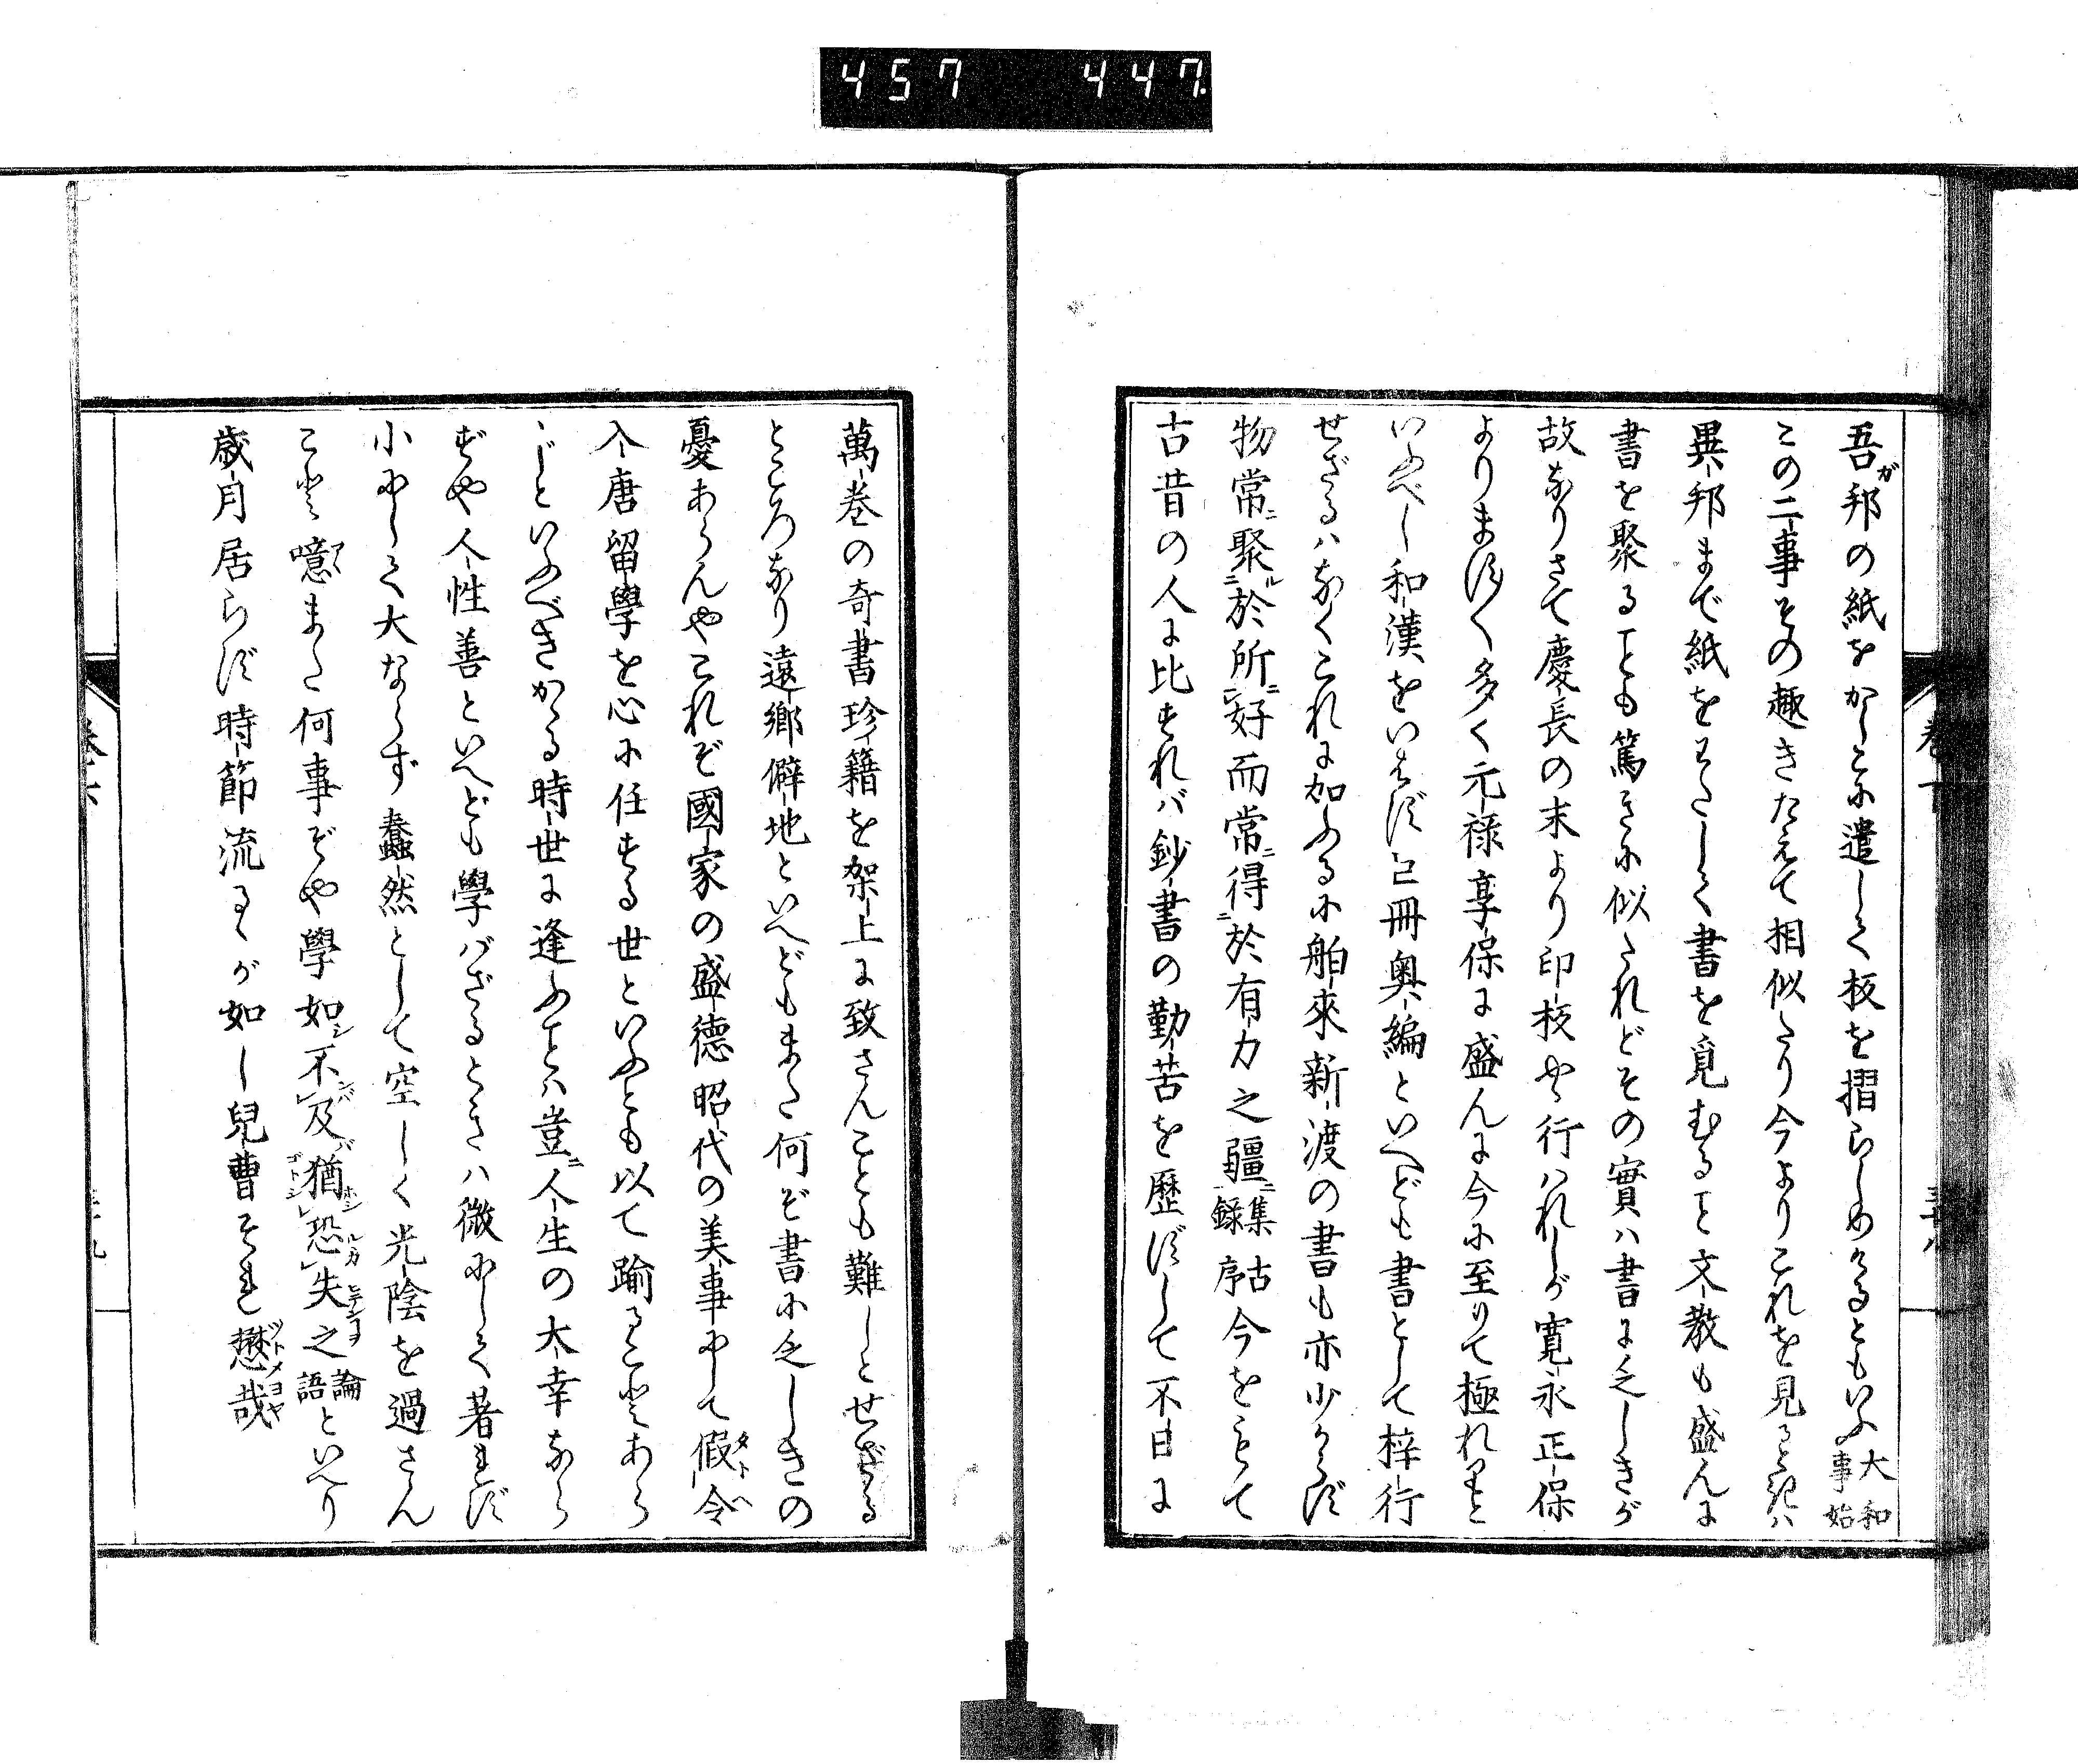 457 447
吾ガ邦の紙をかしこに遣して板を摺らしめけるともいふ大和事始
この二事その趣きたえて相似たり今よりこれを見るときハ
異邦まで紙をわたして書を覓むること文教も盛んに
書を聚ることも篤きに似たれどその實ハ書に乏しきが
故なりさて慶長の末より印校や丶行ハれしが寛永正保
よりますます多く元禄享保に盛んに今に至りて極れりと
いふべし和漢をいはず巨冊奥編といへども書として梓行
せざるハなくこれに加ふるに舶來新渡の書も亦少からず
物常ニ聚ルニ於所ニ好而常ニ得ニ於有力之彊ニ集古録序今をもて
古昔の人に比すれバ鈔書の勤苦を歴ずして不日に
萬巻の奇書珍籍を架上に致さんことも難しとせざる
ところなり遠郷僻地といへどもまた何ぞ書に乏しきの
憂あらんやこれぞ國家の盛德昭代の美事にして假令タトヘ
入唐留學を心に任する世といふとも以て踰ることあら
じといふべきかゝる時世に逢ふことハ豈ニ人生の大幸なら
ずや人性善といへども學バざるときハ微にして著れず
小にして大ならず蠢然として空しく光陰を過さん
こと噫アヽまた何事ぞや學如シ不ンバ及バ猶ホシゴトシ恐ルカ失ヒテンコヲ之論語といへり
歳月居らず時節流るゝが如し兒曹それ懋哉ツトメヨヤ
巻六